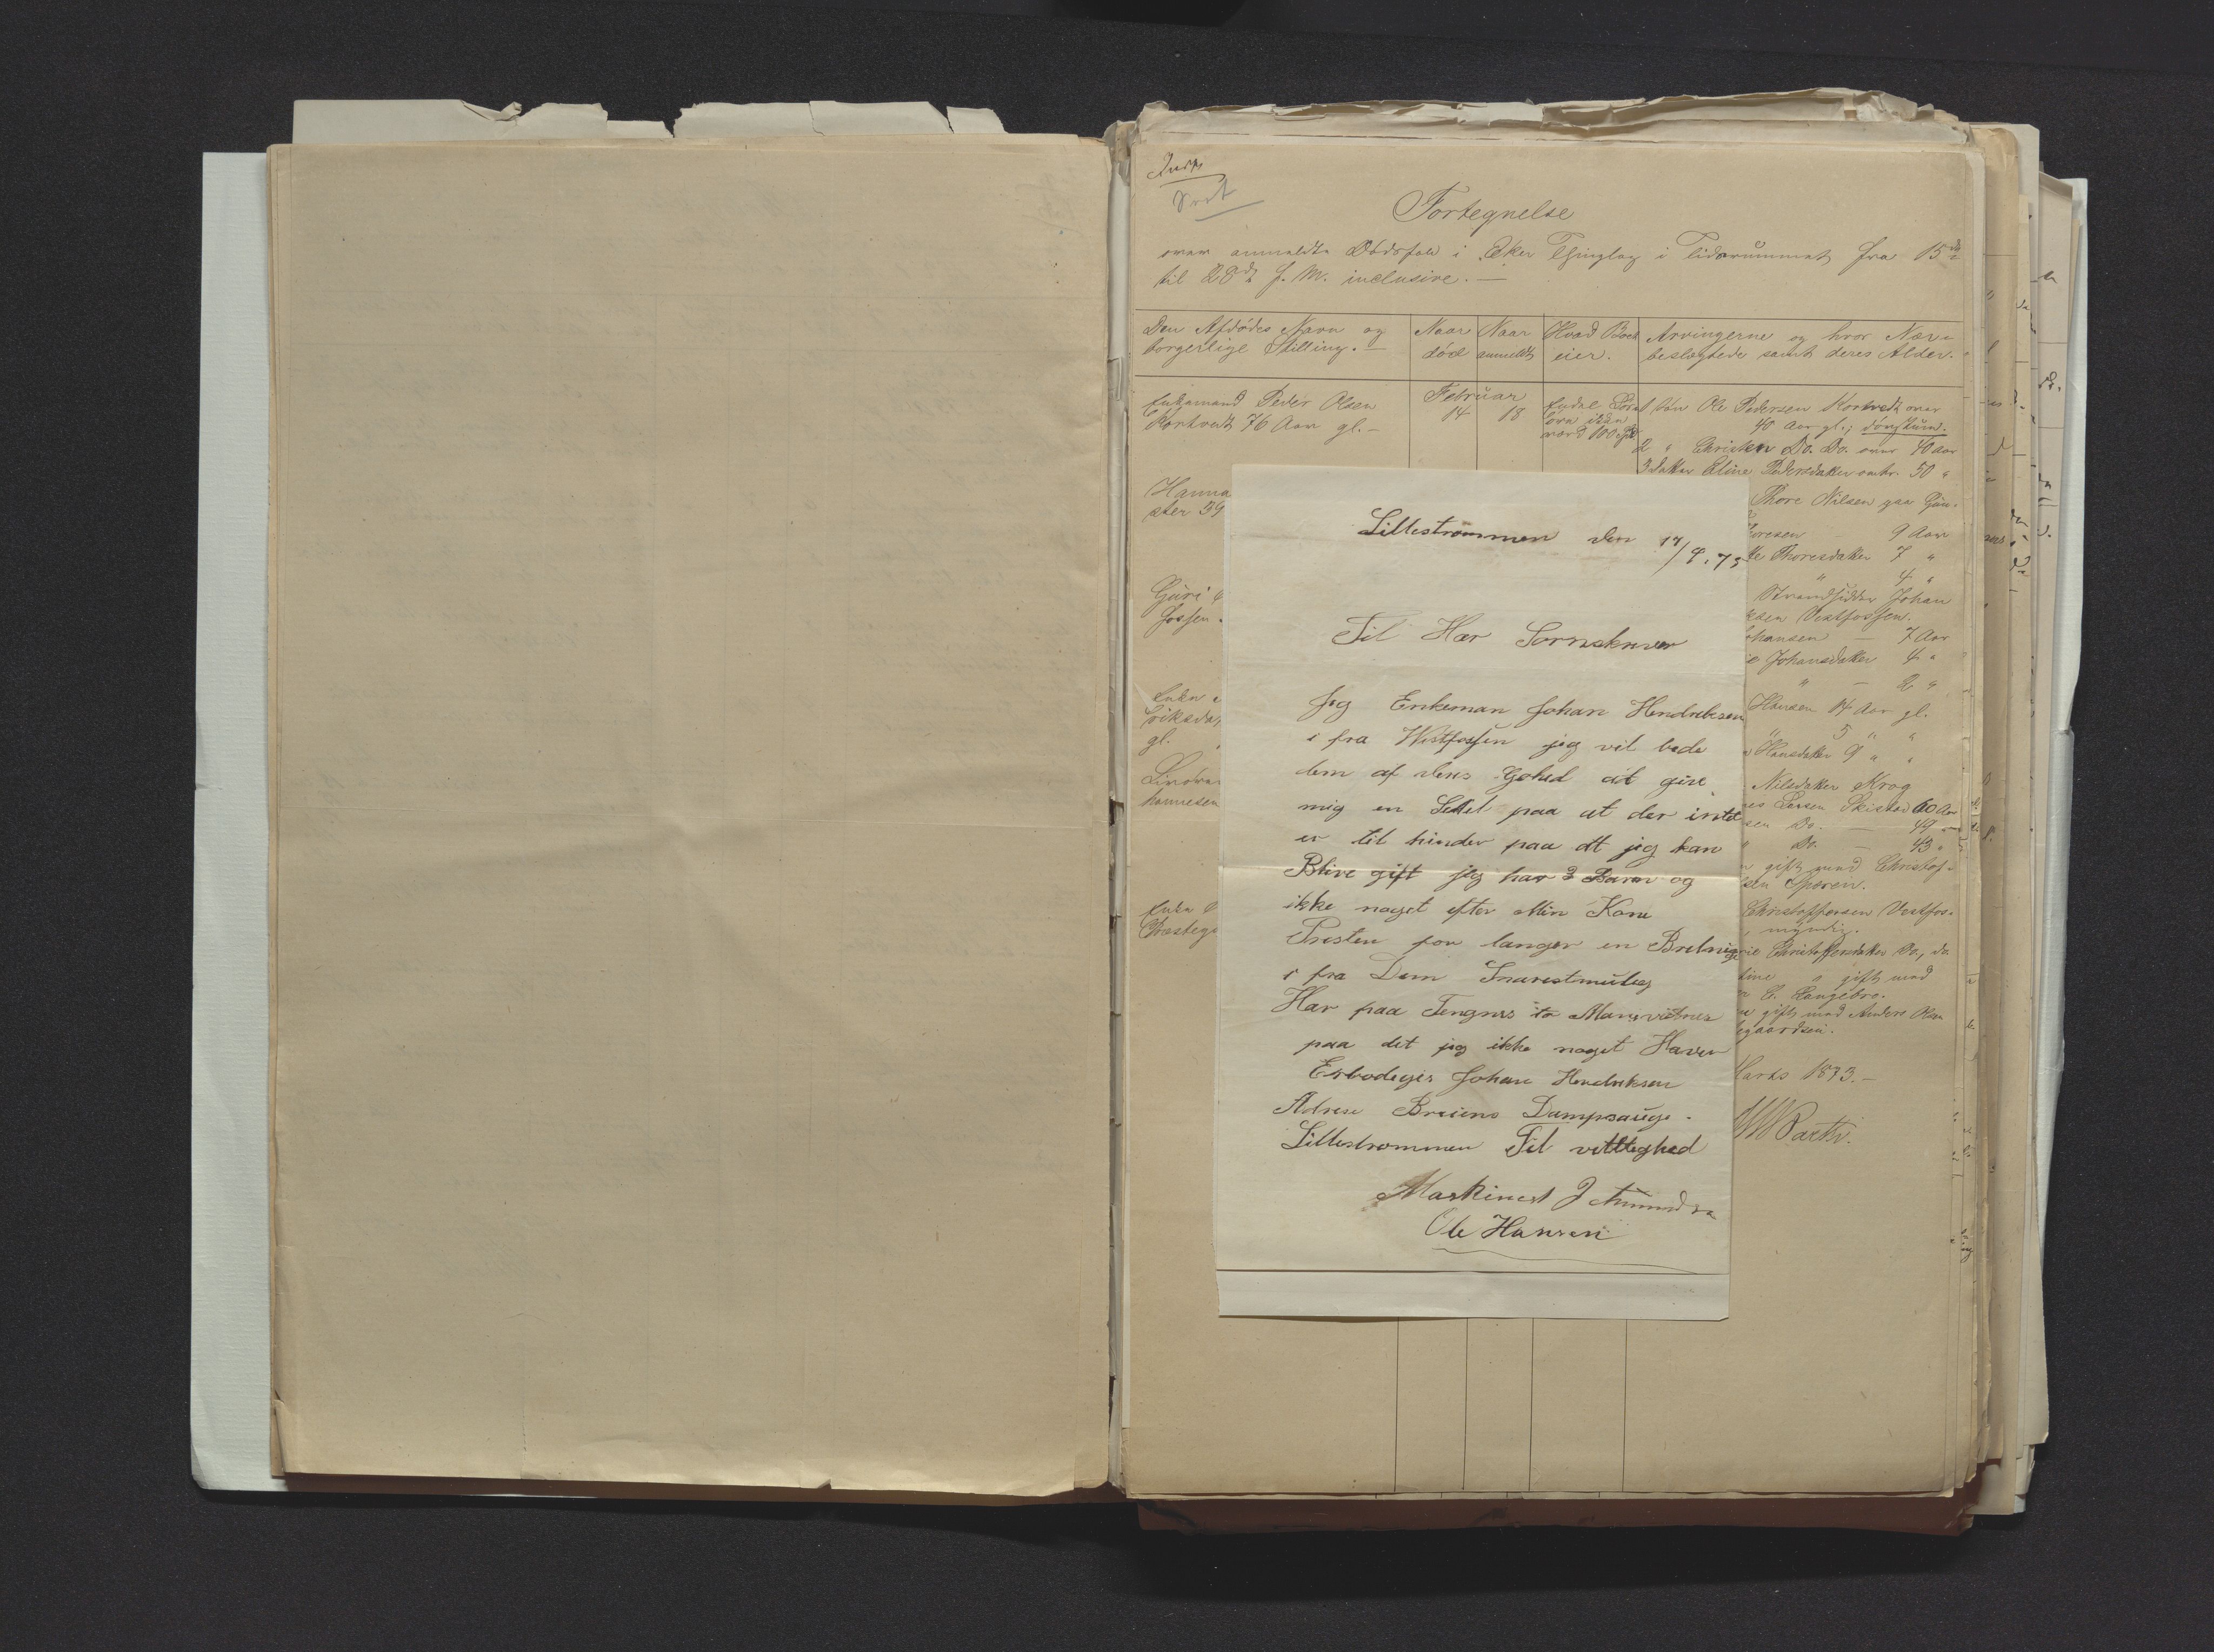 Fortegnelse
over anmeldte Dødsfald i Eker Thinglag i Tidsrummet fra 15de
til 28de f. M. inclusive. —
Den Afdødes Navn og
borgerlige Stilling. —
Naar
død
Naar
anmeldt
Hvad Boet
eier.
Arvingerne og hvor Nær-
beslægtede samt deres Alder.
Enkemand Peder Olsen
Kortvedt 76 Aar gl. —
Februar
14 18
værd 100 Spd
Søn Ole Pedersen Kortvedt over
40 Aar gl.; døvstum.
2 " Christen Do. Do. over 40 Aar
3 Datter Eline Pedersdatter omtr. 50 "
Hanna
ster 39
Thore Nilsen paa
9 Aar
Thoresdatter 7 "
" 4 "
Guri
fossen
Strandsidder Johan
Vestfossen.
Johansen — 7 Aar
Johansdatter 4 "
" — 2 "
Enke
Eriksda
gl.
Hansen 14 Aar gl.
" 5 " "
Hansdatter 9 " "
hannesen
Nilsdatter Krog
Larsen Skistad 60 Aar
Do. — 49
" Do. — 43 "
gift med Christof-
Enke
Præsteg
Christoffersen Vestfos-
myndig.
Christoffersdatter Do., do.
" gift med
C. Langebro.
gift med Anders Olsen
egaardseie.
Marts 1873. —
Lillestrømmen den 17/4. 73
Til Hær Sornskriver
Jeg Enkeman Johan Hendriksen
i fra Westfossen jeg vil bede
dem af deres Gohed at give
mig en Settel paa at der intet
er til hinder paa at jeg kan
Blive gift jeg har 3 Barn og
ikke noget efter Min Kone
Presten for langer en Bretning
i fra Dem Snarestmuleg
Har paa Tengnes to Mansvitner
paa det jeg ikke noget Haver
Erbodigis Johan Hendriksen
Adrese Breiens Dampsauge.
Lillestrømmen Til vitttlighed
Maskinest J Amundsen
Ole Hansen